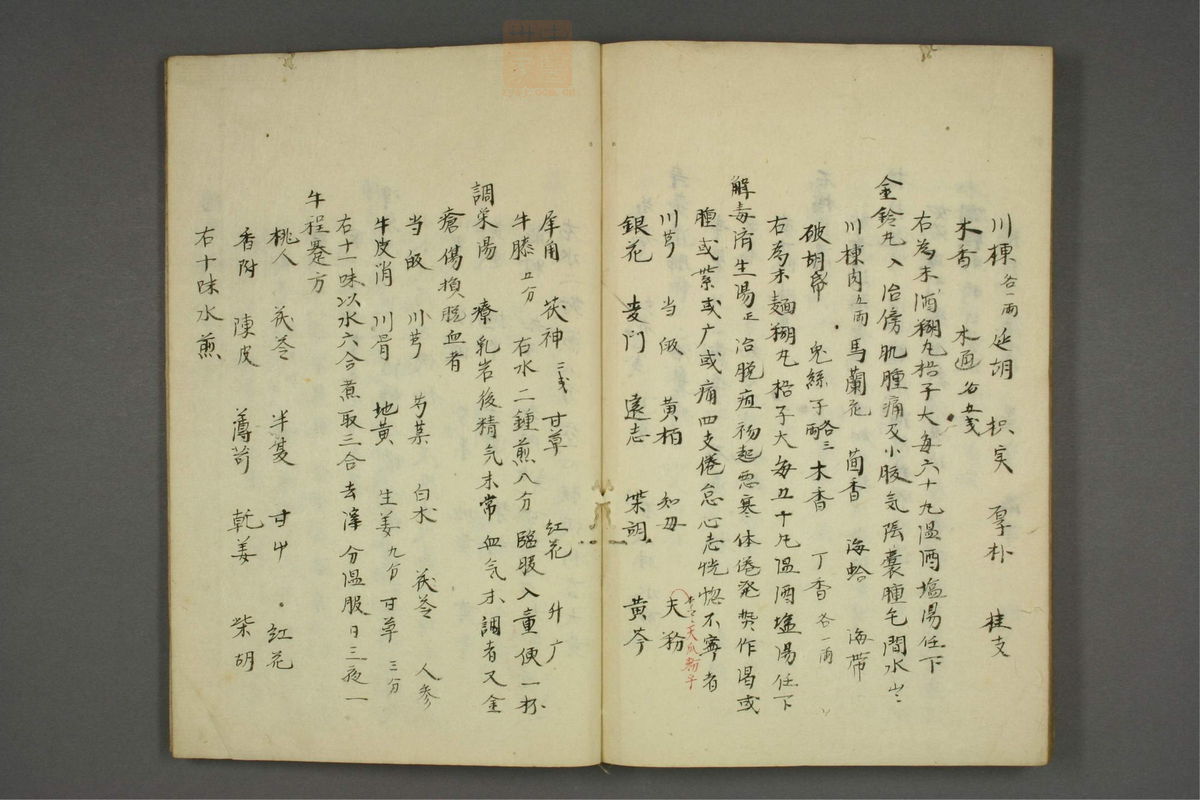 川楝各一両 延胡 枳実 厚朴 桂支
木香 木通各五戔
右為末酒糊丸梧子大每六十丸温酒塩湯任下
金鈴丸 入 治傍肌腫痛及小腹気陰囊腫毛間水出
川楝肉五両 馬蘭花 茴香 海蛤 海帯
破胡 兎絲子各三両 木香 丁香各一両
右為末麺糊丸梧子大每五十丸温酒塩湯任下
解毒済生湯 正 治脱疽初起悪寒体倦発热作渇或
腫或紫或广或痛四支倦怠心志恍惚不寧者
川芎 当皈 黄栢 知母 天粉
天瓜粉乎
銀花 麦門 遠志 柴胡 黄芩
犀角 茯神二戔 甘草 紅花 升广
牛膝五分 右水二鍾煎八分臨服入童便一杯
調栄湯 療乳岩後精气未常血气不調者又金
瘡傷損脱血者
当皈 川芎 芍薬 白朮 茯苓 人参
牛皮消 川骨 地黄 生姜九分 甘草三分
右十一味以水六合煮取三合去滓分温服日三夜一
牛程蹇方
桃人 茯苓 半夏 甘屮 紅花
香附 陳皮 薄苛 乾姜 柴胡
右十味水煎